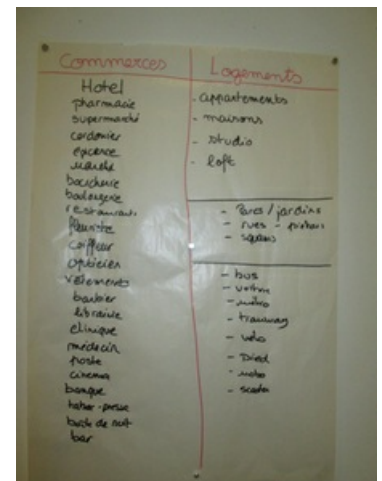 Commerces
Hotel
pharmacie
supermarché
cordonier
épicerie
marché
boucherie
boulangerie
restaurants
fleuriste
coiffeur
opticien
vêtements
barbier
librairie
clinique
médecin
poste
cinema
banque
tabac-presse
boîte de nuit
bar
Logements
- appartements
- maisons
- studio
- loft
- Parcs / jardins
- rues - 
- squares
- bus
- voiture
- métro
- tramway
- vélo
- Pied
- moto
- scooter